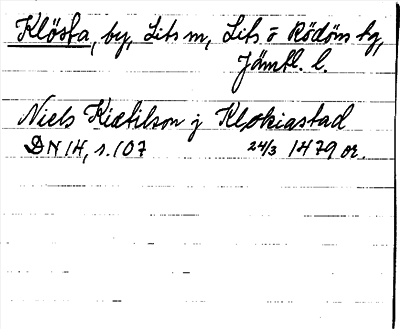 Klösta, by, Lits m, Lits o Rödöns tg,
Jämtl. l.
Niels Kiætilson j Klokiastad
DN 14, s. 107 24/3 1479 or.